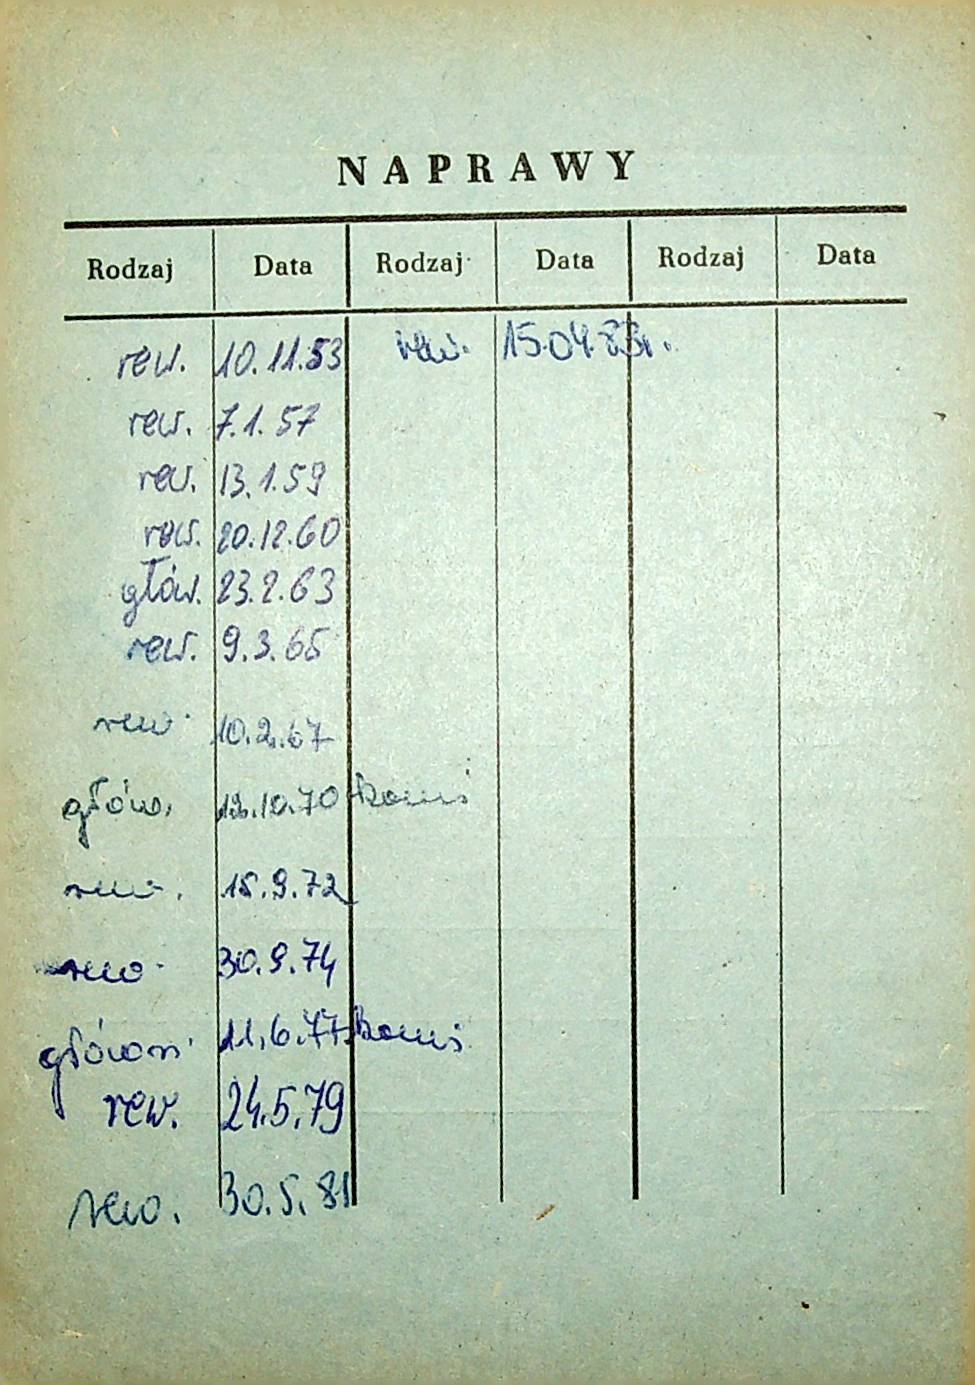 NAPRAWY
Rodzaj Data Rodzaj Data Rodzaj Data
rew. 10.11.53 rew. 15.04.83r.
rew. 7.1.57
rew. 13.1.59
rew. 20.12.60
głów. 23.2.63
rew. 9.3.65
rew. 10.2.67
głów. 12.10.70
rew. 15.9.72
rew. 30.9.74
główn. 11.6.77
rew. 24.5.79
rew. 30.5.81